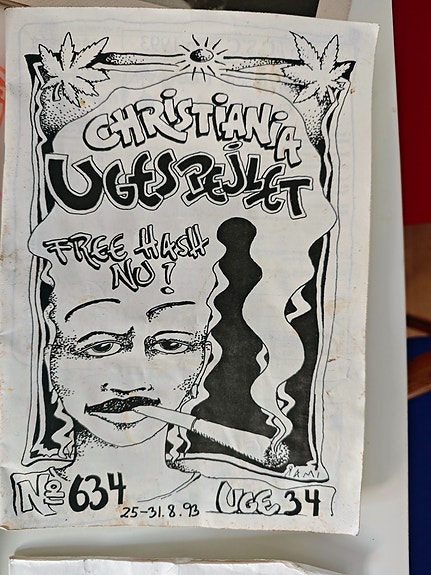 CHRISTIANIA
UGESPEJLET
FREE HASH
NU!
No 634
25-31.8.93
UGE 34